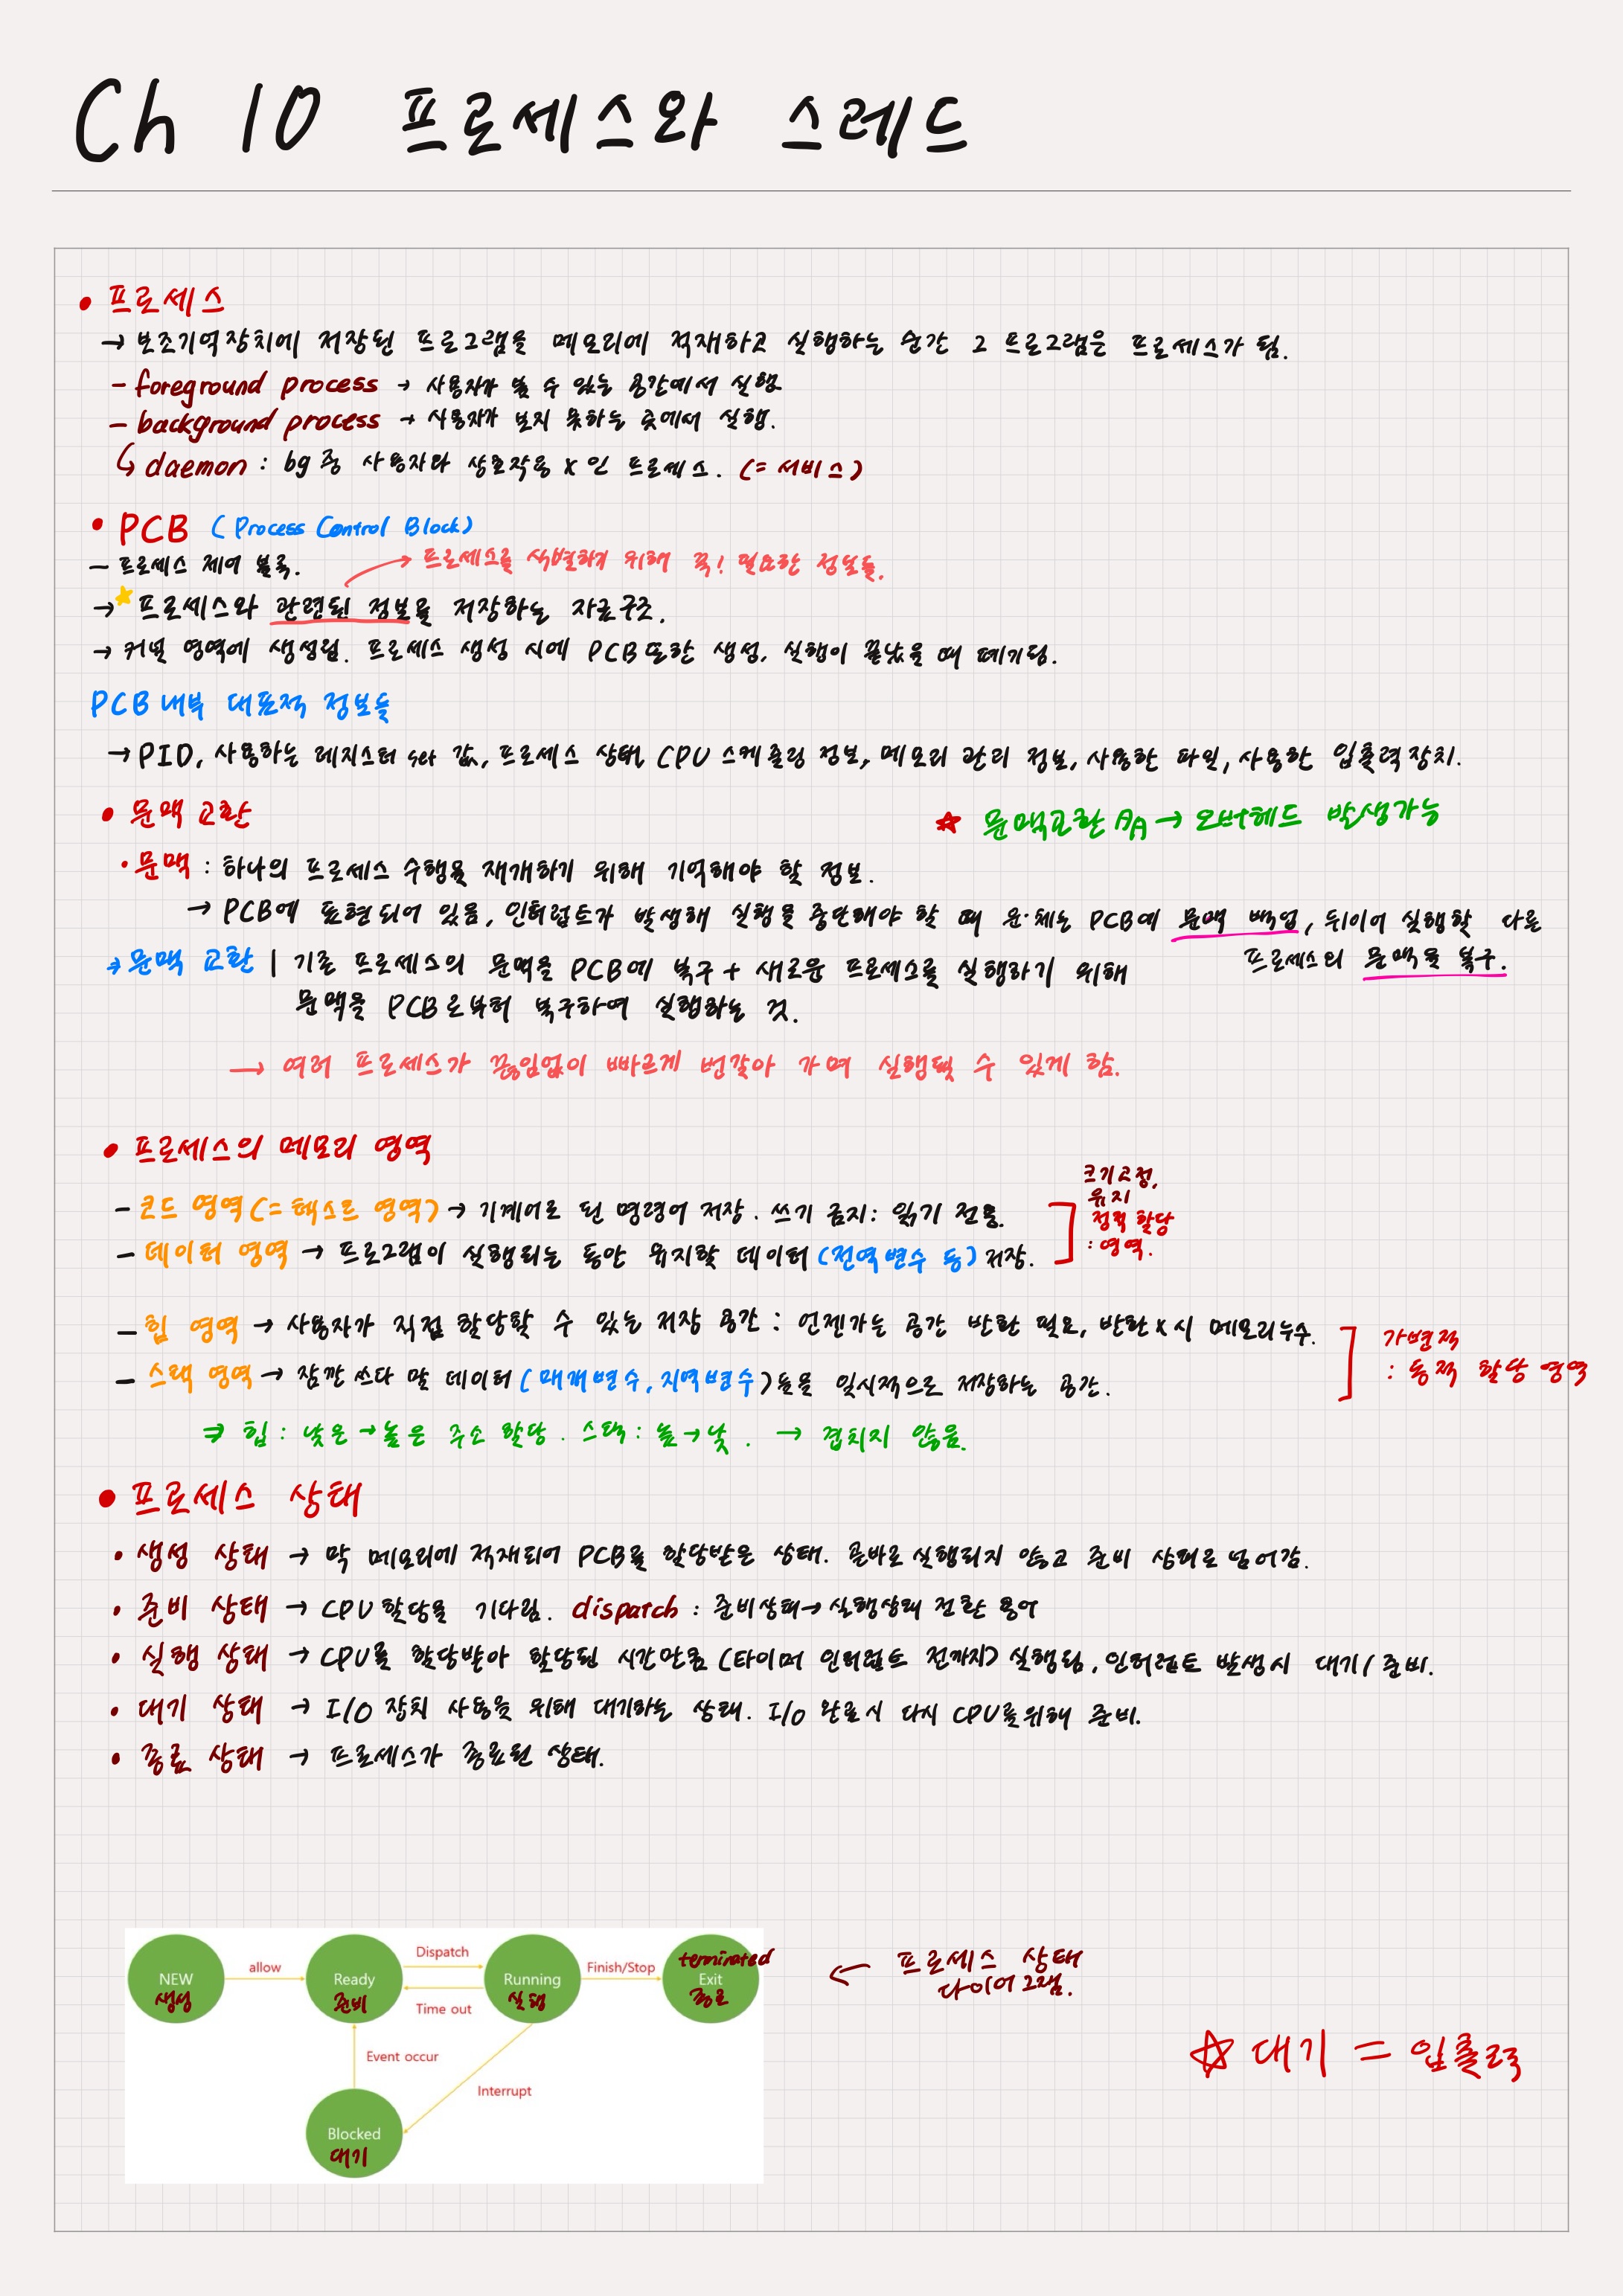 Ch 10 프로세스와 스레드
• 프로세스
→ 보조기억장치에 저장된 프로그램을 메모리에 적재하고 실행하는 순간 그 프로그램은 프로세스가 됨.
- foreground process → 사용자가 볼 수 있는 공간에서 실행
- background process → 사용자가 보지 못하는 곳에서 실행.
↳ daemon : bg 중 사용자와 상호작용 X 인 프로세스. (= 서비스)
• PCB (Process Control Block)
- 프로세스 제어 블록.
→ 프로세스를 식별하기 위해 꼭! 필요한 정보들.
→ ★ 프로세스와 관련된 정보를 저장하는 자료구조.
→ 커널 영역에 생성됨. 프로세스 생성 시에 PCB 또한 생성, 실행이 끝났을 때 폐기됨.
PCB 내부 대표적 정보들
→ PID, 사용하는 레지스터 set 값, 프로세스 상태, CPU 스케줄링 정보, 메모리 관리 정보, 사용한 파일, 사용한 입출력장치.
• 문맥 교환
☆ 문맥교환 AA → 오버헤드 발생가능
• 문맥 : 하나의 프로세스 수행을 재개하기 위해 기억해야 할 정보.
→ PCB에 표현되어 있음, 인터럽트가 발생해 실행을 중단해야 할 때 운·체는 PCB에 문맥 백업, 뒤이어 실행할 다른
프로세스의 문맥을 복구.
→ 문맥 교환 | 기존 프로세스의 문맥을 PCB에 복구 + 새로운 프로세스를 실행하기 위해
문맥을 PCB로부터 복구하여 실행하는 것.
→ 여러 프로세스가 끊임없이 빠르게 번갈아 가며 실행될 수 있게 함.
• 프로세스의 메모리 영역
- 코드 영역 (= 텍스트 영역) → 기계어로 된 명령어 저장. 쓰기 금지: 읽기 전용.
- 데이터 영역 → 프로그램이 실행되는 동안 유지할 데이터 (전역변수 등) 저장.
크기고정,
유지
정적 할당
: 영역.
- 힙 영역 → 사용자가 직접 할당할 수 있는 저장 공간 : 언젠가는 공간 반환 필요, 반환 X 시 메모리누수.
- 스택 영역 → 잠깐 쓰다 말 데이터 (매개변수, 지역변수) 등을 일시적으로 저장하는 공간.
가변적
: 동적 할당 영역
⇒ 힙 : 낮은 → 높은 주소 할당. 스택 : 높 → 낮. → 겹치지 않음.
• 프로세스 상태
• 생성 상태 → 막 메모리에 적재되어 PCB를 할당받은 상태. 곧바로 실행되지 않고 준비 상태로 넘어감.
• 준비 상태 → CPU 할당을 기다림. dispatch : 준비상태 → 실행상태 전환 용어
• 실행 상태 → CPU를 할당받아 할당된 시간만큼 (타이머 인터럽트 전까지) 실행됨, 인터럽트 발생시 대기/준비.
• 대기 상태 → I/O 장치 사용을 위해 대기하는 상태. I/O 완료시 다시 CPU를위해 준비.
• 종료 상태 → 프로세스가 종료된 상태.
NEW
생성
allow
Ready
준비
Dispatch
Time out
Running
실행
Finish/Stop
terminated
Exit
종료
← 프로세스 상태
다이어그램.
Event occur
Interrupt
Blocked
대기
☆ 대기 = 입출력